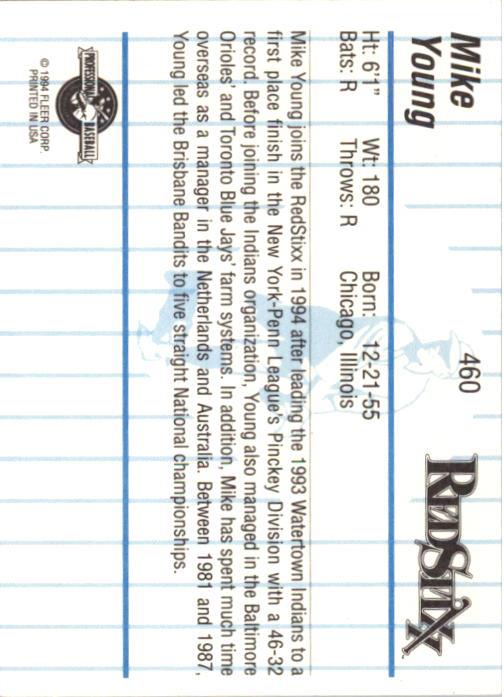 Mike
Young
460
REDSTIXX
Ht: 6'1" Wt: 180 Born: 12-21-55
Bats: R Throws: R Chicago, Illinois
Mike Young joins the RedStixx in 1994 after leading the 1993 Watertown Indians to a
first place finish in the New York-Penn League's Pinckey Division with a 46-32
record. Before joining the Indians organization, Young also managed in the Baltimore
Orioles' and Toronto Blue Jays' farm systems. In addition, Mike has spent much time
overseas as a manager in the Netherlands and Australia. Between 1981 and 1987,
Young led the Brisbane Bandits to five straight National championships.
PROFESSIONAL BASEBALL
© 1994 FLEER CORP.
PRINTED IN USA